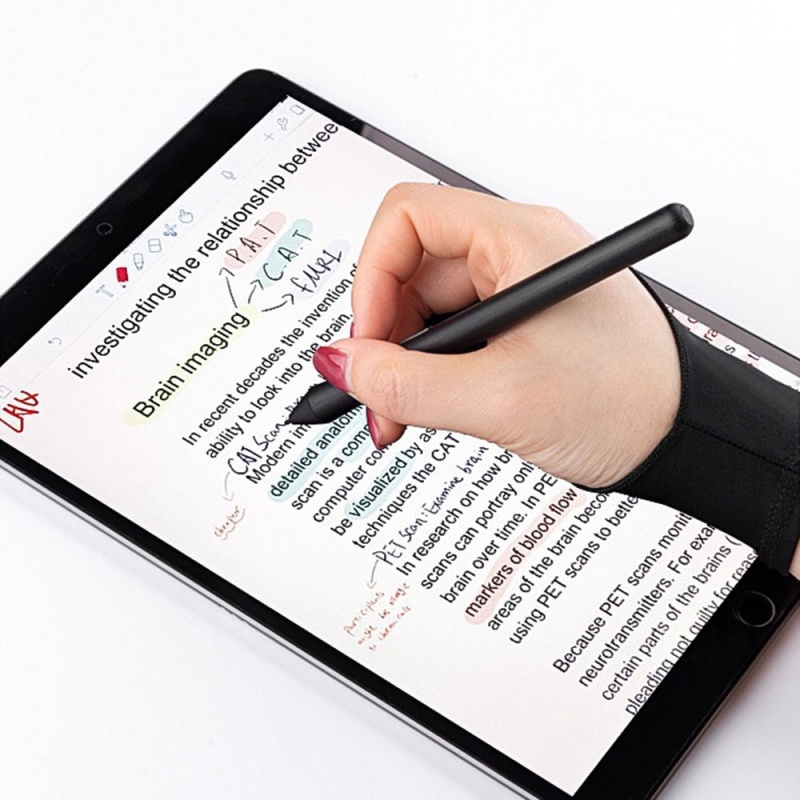 investigating the relationship betwee
P.A.T
C.A.T
fMRI
Brain imaging
In recent decades the invention of
ability to look into the brain.
CAT Scan:
Modern
detailed
scan is a
computer
be visualized by as
techniques the CAT
PET scan: Examine brain
In research on how b
scans can portray onl
brain over time. In PE
markers of blood flow
areas of the brain beco
using PET scans to bette
Because PET scans monit
neurotransmitters. For exa
certain parts of the brains (
pleading not guilty for reas